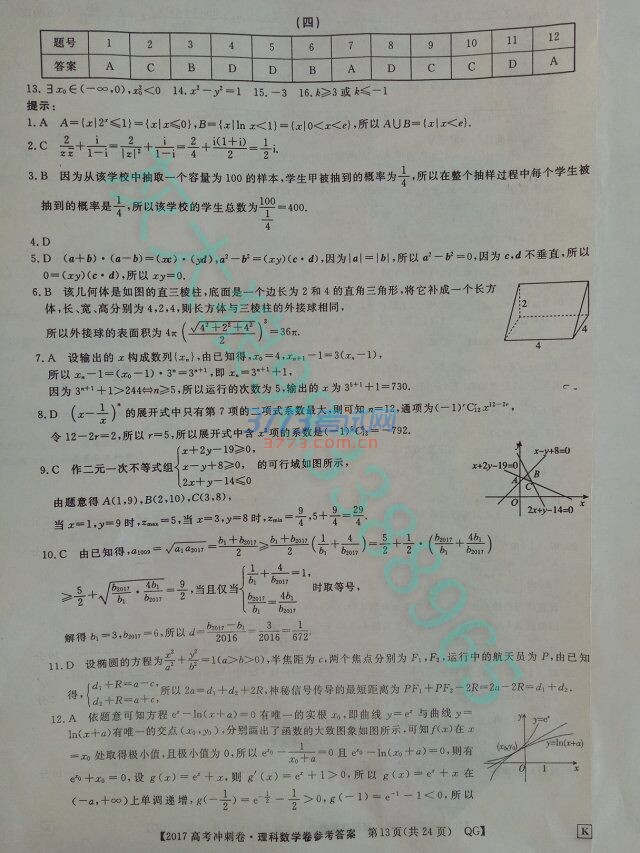 (四)
题号 1 2 3 4 5 6 7 8 9 10 11 12
答案 A C B D D B A D C C D A
13. ∃x₀∈(-∞,0), x₀²<0  14. x²-y²=1  15. -3  16. k≥3或k≤-1
提示:
1. A  A={x|2ˣ≤1}={x|x≤0},B={x|ln x<1}={x|0<x<e},所以A∪B={x|x<e}.
2. C  2/(z z̄)+i/(1-i)=2/|z|²+i/(1-i)=2/4+i(1+i)/2=1/2 i.
3. B  因为从该学校中抽取一个容量为100的样本,学生甲被抽到的概率为1/4,所以在整个抽样过程中每个学生被
抽到的概率是1/4,所以该学校的学生总数为100/(1/4)=400.
4. D
5. D  (a+b)·(a-b)=(xc)·(yd),a²-b²=(xy)(c·d),因为|a|=|b|,所以a²-b²=0,因为c,d不垂直,所以
0=(xy)(c·d),所以xy=0.
6. B  该几何体是如图的直三棱柱,底面是一个边长为2和4的直角三角形,将它补成一个长方
体,长、宽、高分别为4,2,4,则长方体与三棱柱的外接球相同,
所以外接球的表面积为4π(√(4²+2²+4²)/2)²=36π.
2
4
4
7. A  设输出的x构成数列{xₙ},由已知得,x₀=4,xₙ₊₁-1=3(xₙ-1),
所以xₙ-1=(x₀-1)·3ⁿ=3ⁿ⁺¹,即xₙ=3ⁿ⁺¹+1,
因为3ⁿ⁺¹+1>244⇔n≥5,所以运行的次数为5,输出的x为3⁵⁺¹+1=730.
8. D  (x-1/x)ⁿ的展开式中只有第7项的二项式系数最大,则可知n=12,通项为(-1)ʳC₁₂ʳx¹²⁻²ʳ,
令12-2r=2,所以r=5,所以展开式中含x²项的系数是(-1)⁵C₁₂⁵=-792.
9. C  作二元一次不等式组{x+2y-19≥0, x-y+8≥0, 2x+y-14≤0 的可行域如图所示,
由题意得A(1,9),B(2,10),C(3,8),
当x=1,y=9时,zmax=5,当x=3,y=8时,zmin=9/4,5+9/4=29/4.
x-y+8=0
x+2y-19=0
A B C
O x
2x+y-14=0
10. C  由已知得,a₁₀₀₉=√(a₁a₂₀₁₇)=(b₁+b₂₀₁₇)/2≥(b₁+b₂₀₁₇)/2(1/b₁+4/b₂₀₁₇)=5/2+1/2·(b₂₀₁₇/b₁+4b₁/b₂₀₁₇)
≥5/2+√(b₂₀₁₇/b₁·4b₁/b₂₀₁₇)=9/2,当且仅当{1/b₁+4/b₂₀₁₇=1, b₂₀₁₇/b₁=4b₁/b₂₀₁₇ 时取等号,
解得b₁=3,b₂₀₁₇=6,所以d=(b₂₀₁₇-b₁)/2016=3/2016=1/672.
11. D  设椭圆的方程为x²/a²+y²/b²=1(a>b>0),半焦距为c,两个焦点分别为F₁,F₂,运行中的航天员为P,由已知
得,{d₁+R=a-c, d₂+R=a+c, 所以2a=d₁+d₂+2R,神秘信号传导的最短距离为PF₁+PF₂-2R=2a-2R=d₁+d₂.
12. A  依题意可知方程eˣ-ln(x+a)=0有唯一的实根x₀,即曲线y=eˣ与曲线y=
ln(x+a)有唯一的交点(x₀,y₀),分别画出了函数的大致图象如图所示,可知f(x)在x
=x₀处取得极小值,且极小值为0,所以e^x₀-1/(x₀+a)=0且e^x₀-ln(x₀+a)=0,则有
e^x₀+x₀=0,设g(x)=eˣ+x,则g′(x)=eˣ+1>0,所以g(x)=eˣ+x在
(-a,+∞)上单调递增,g(-1/2)=e^(-1/2)-1/2>0,g(-1)=e⁻¹-1<0,所以
y
y=eˣ
(x₀,y₀)
y=ln(x+a)
O 1 x
【2017高考冲刺卷·理科数学卷参考答案  第13页(共24页)  QG】
K
3773考试网
3773.com.cn